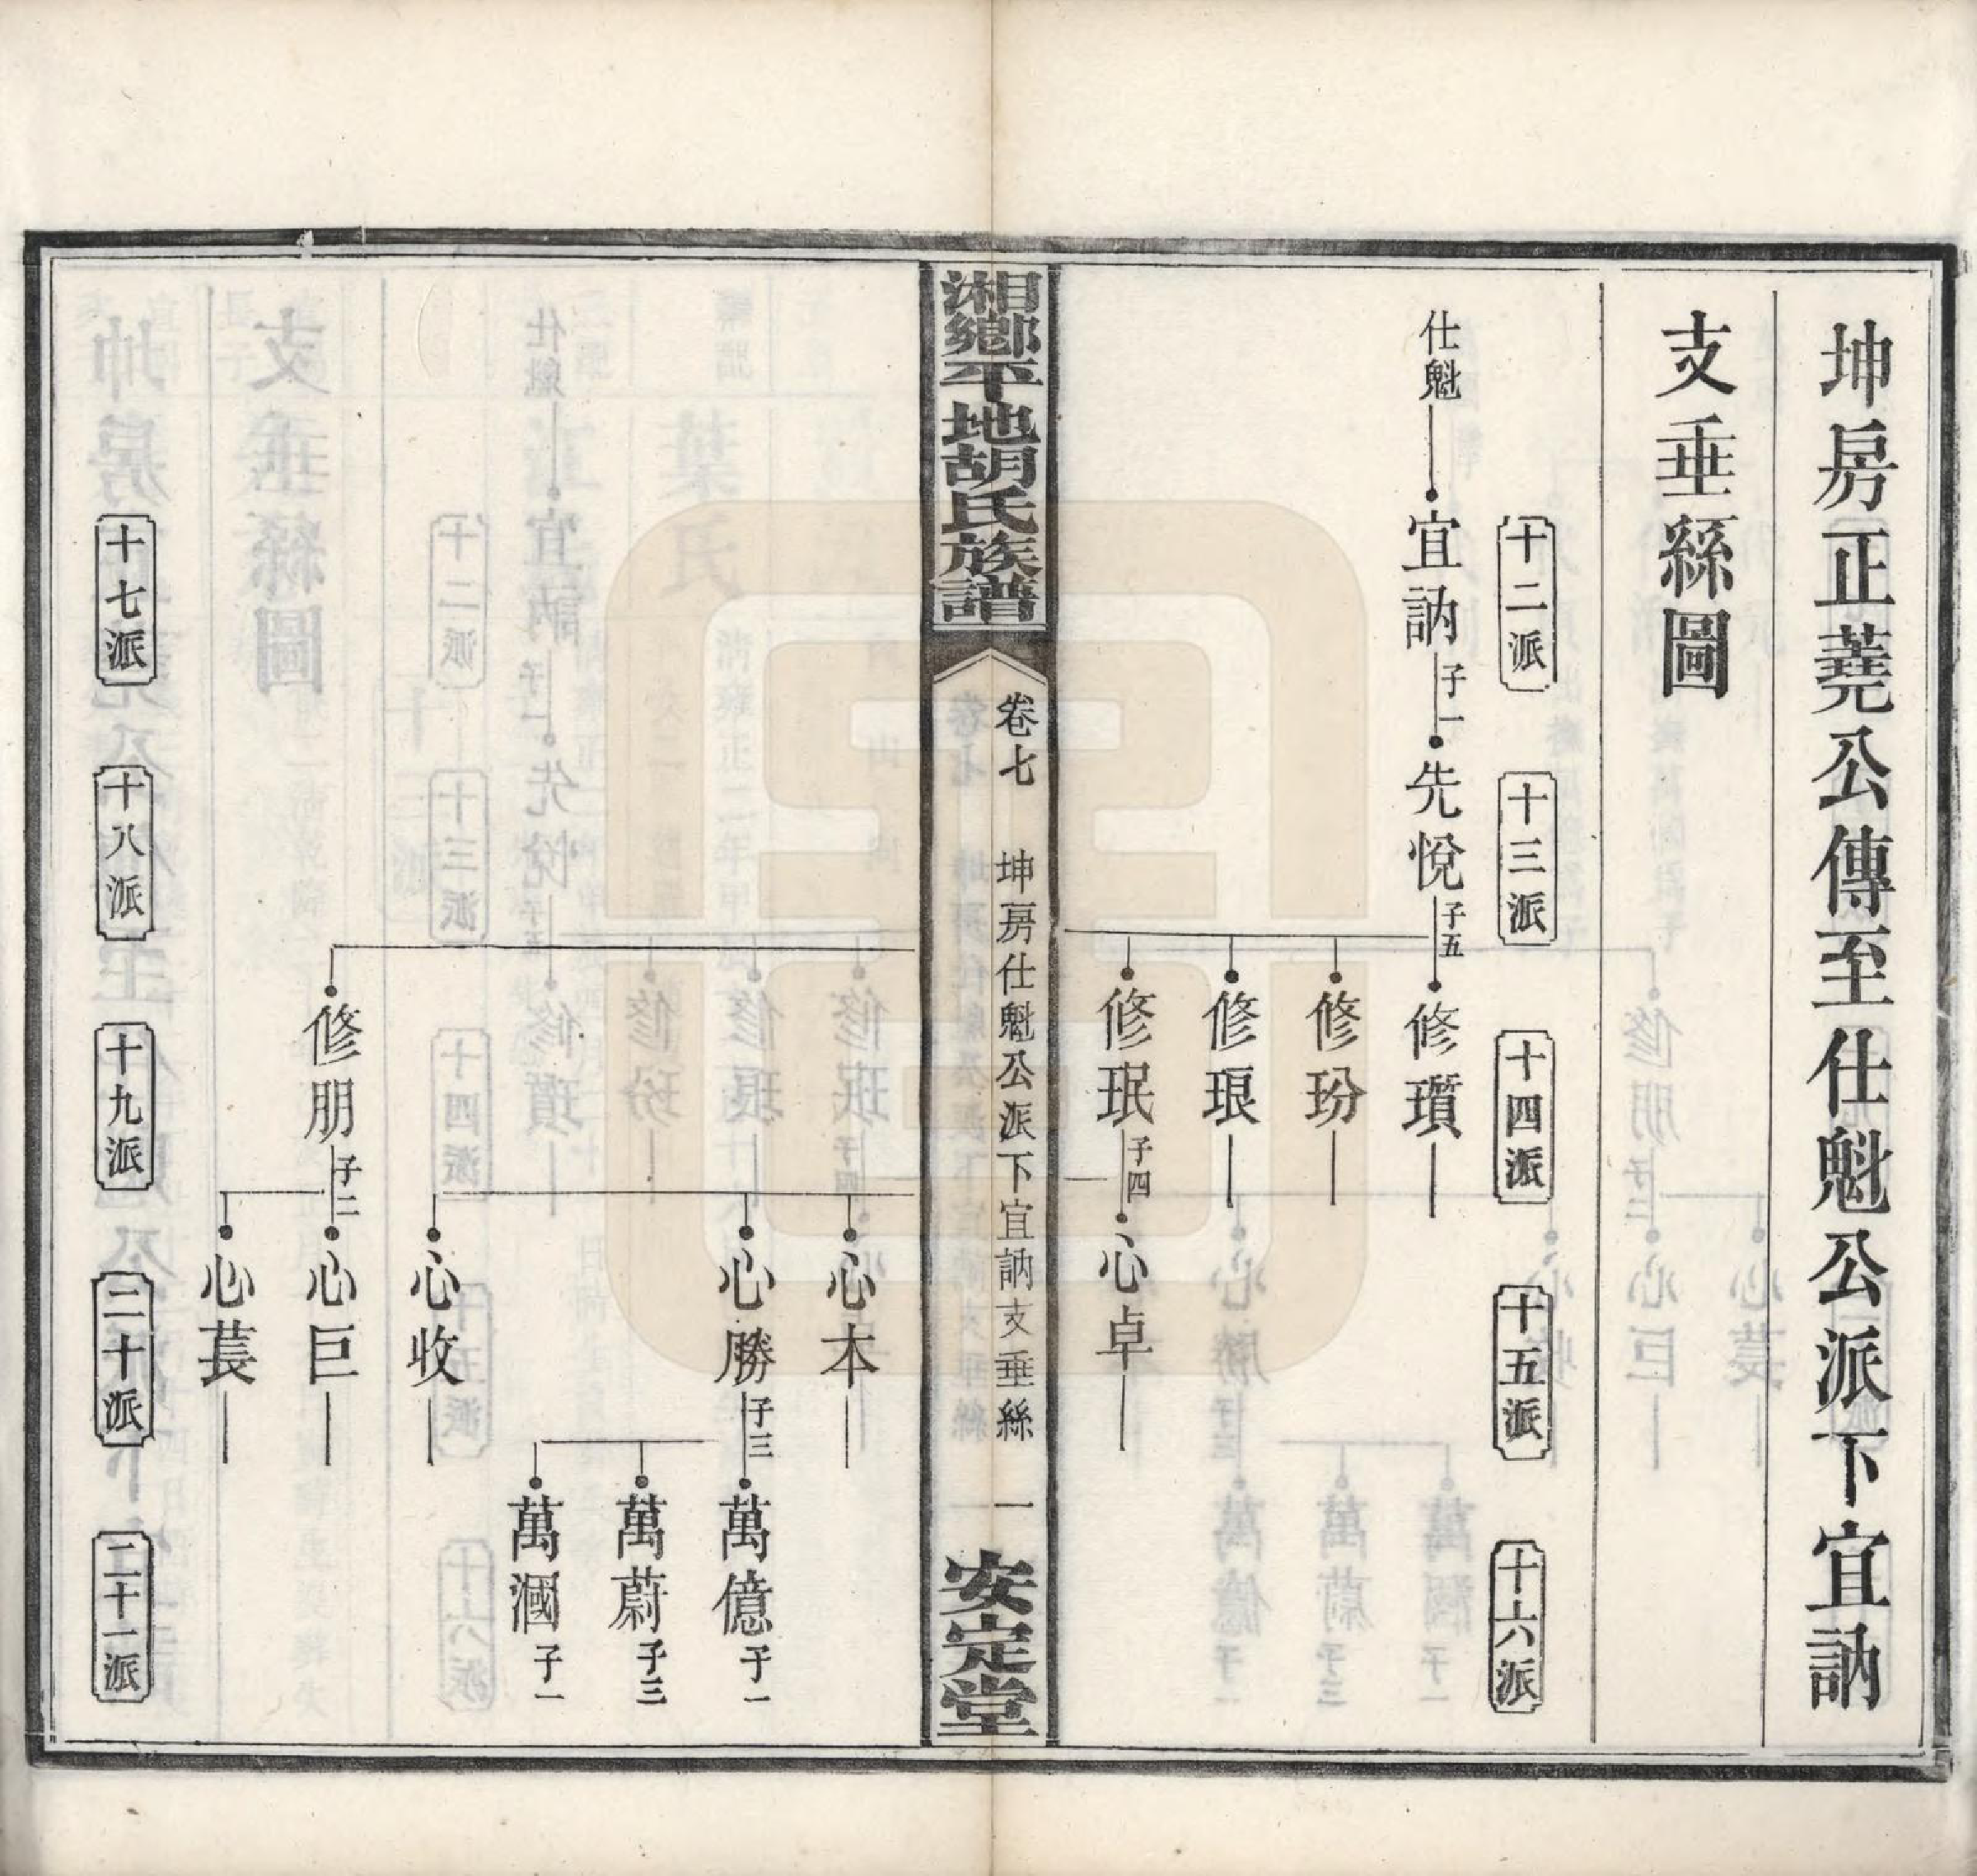 坤房正蕘公傳至仕魁公派下宜訥
支垂絲圖
十二派
十三派
十四派
十五派
十六派
仕魁
宜訥 子一
先悅 子五
修瓚
修玢
修琅
修珉 子四
心卓
湘鄉平地胡氏族譜
卷七
坤房仕魁公派下宜訥支垂絲
一
安定堂
心本
心勝 子三
萬億 子一
萬蔚 子三
萬漍 子一
心收
修朋 子二
心巨
心萇
十七派
十八派
十九派
二十派
二十一派